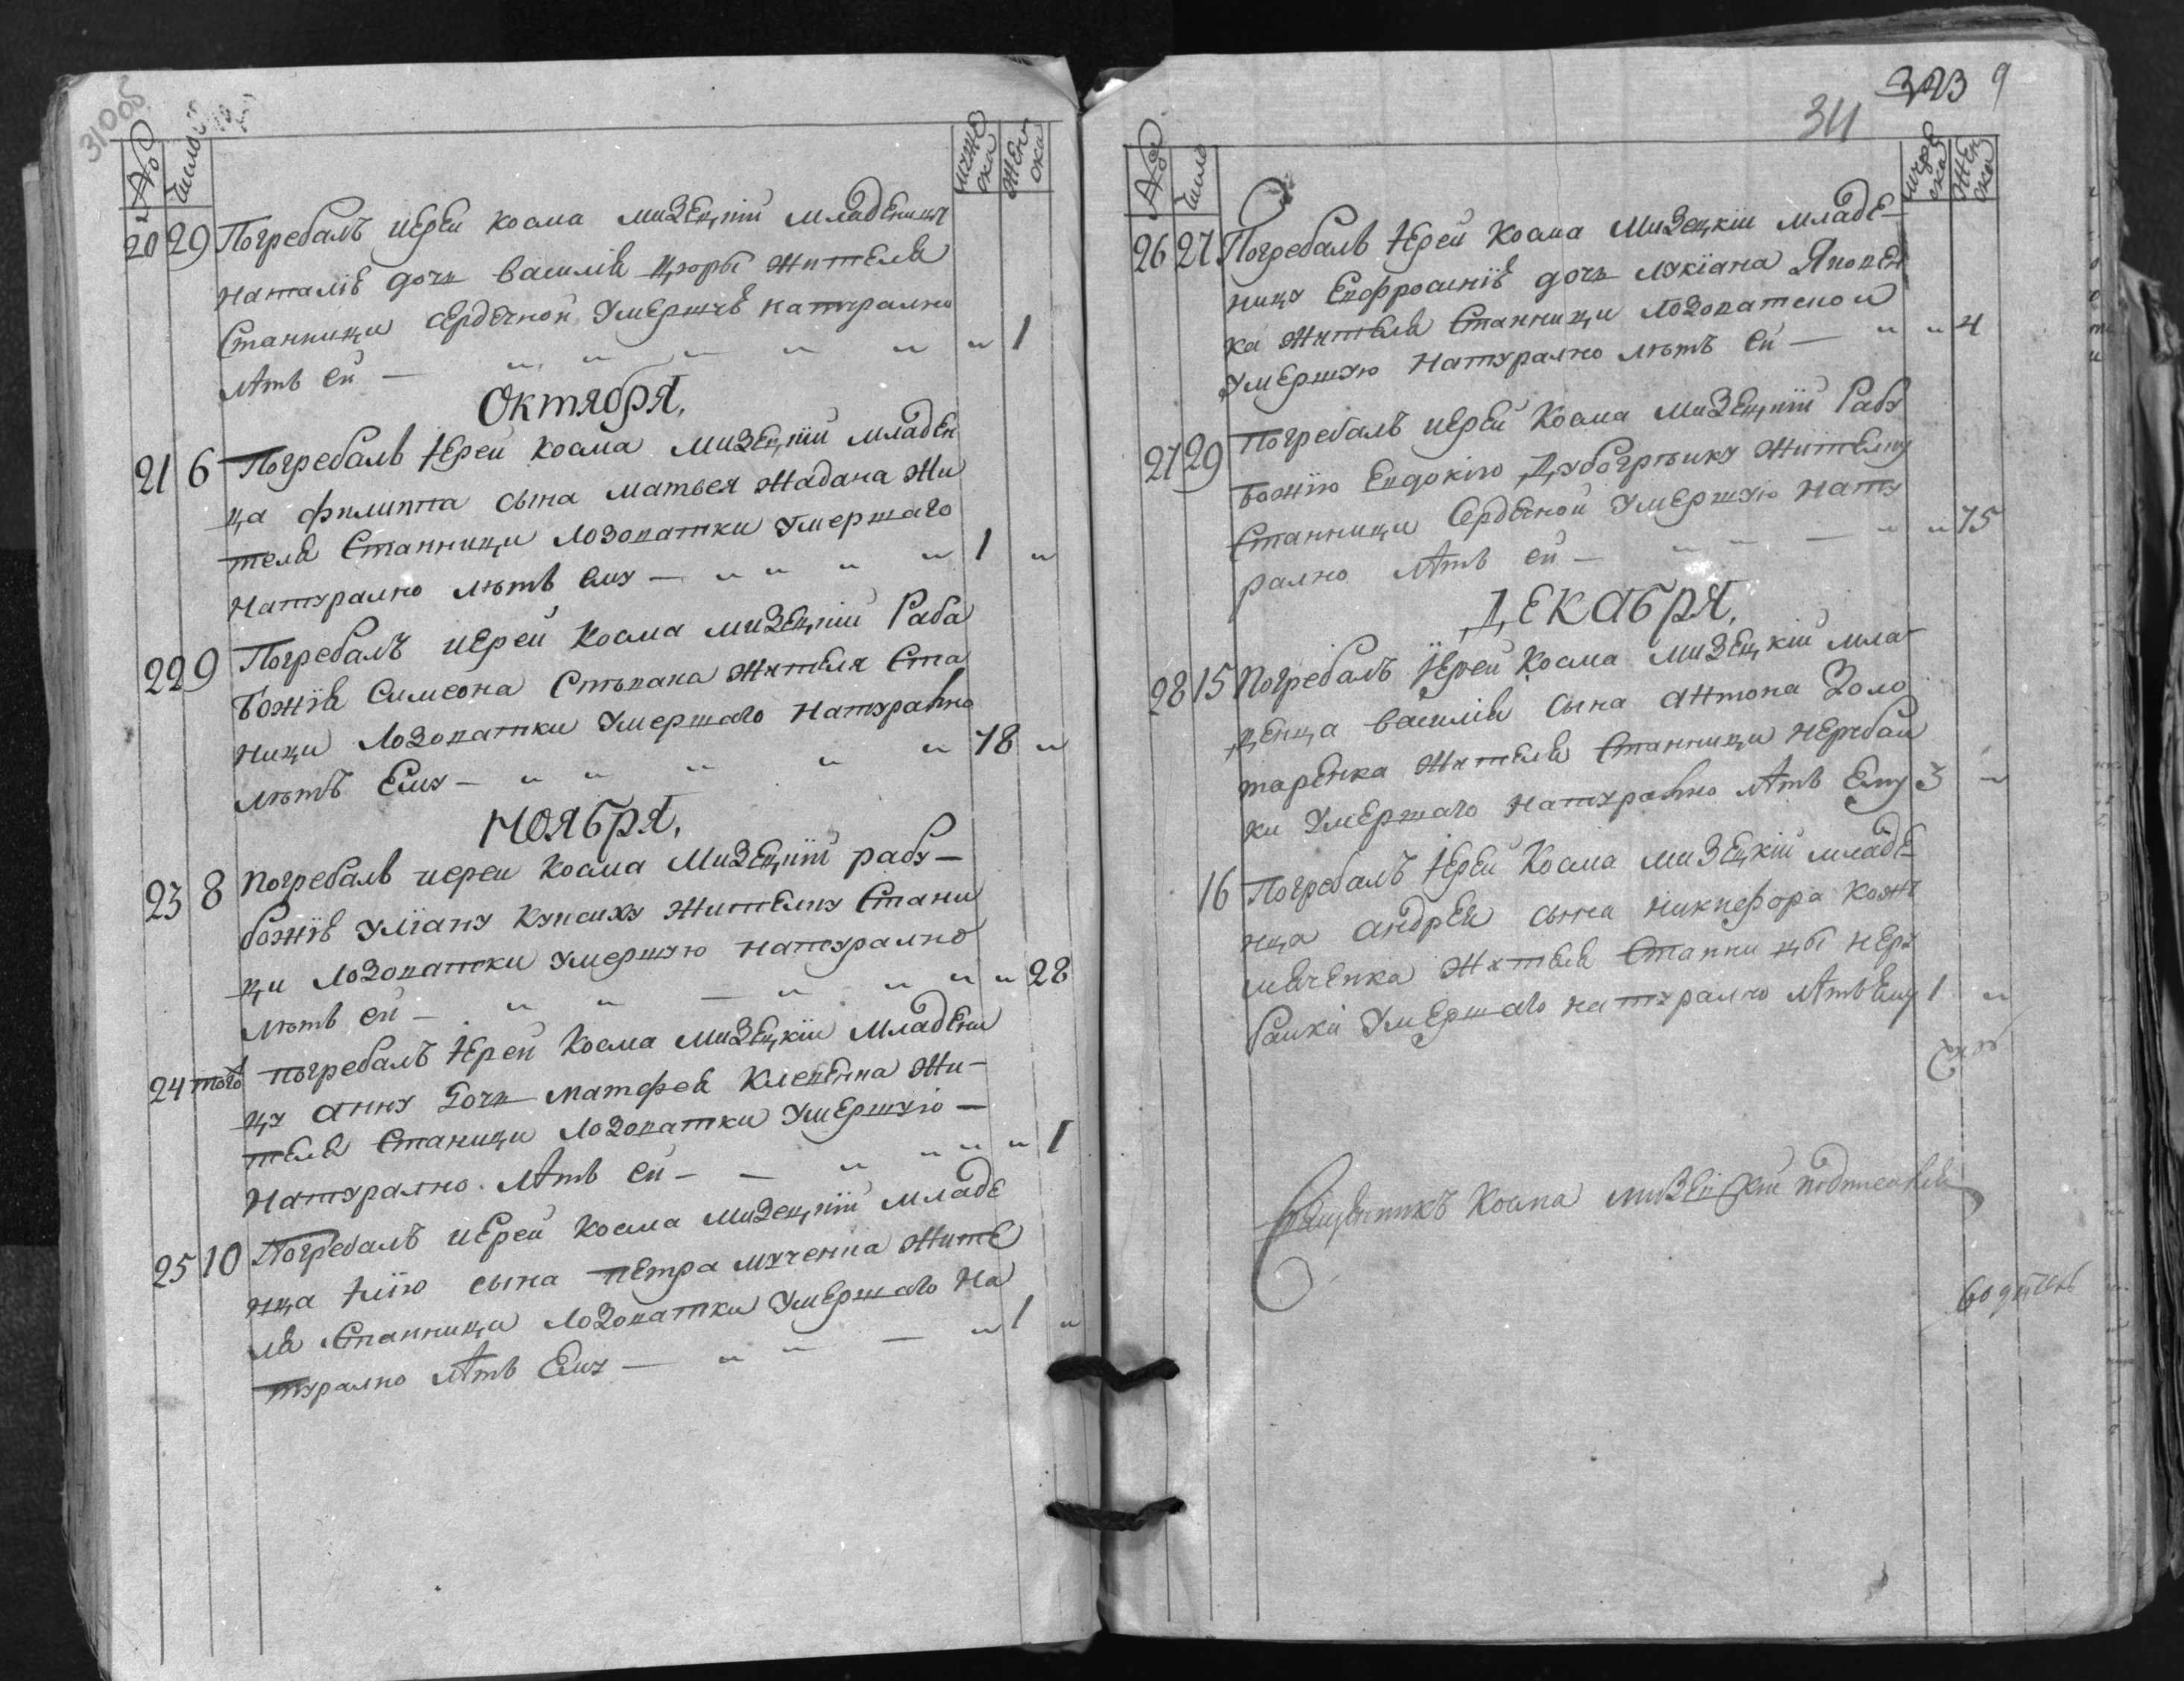 310об
№ Число мужеска женска
20 29 Погребалъ иерей Косма Мизецкій младеницу
Наталіѣ дочь Василія Цюры жителя
Станницы Сердечной Умершѣ натурално
Лѣтъ ей — " " — " " " 1
Октября,
21 6 Погребалъ Іерей Косма Мизецкій младен
ца Филиппа сына Матвея Жадана жи
теля Станници Лозоватки Умершаго
Натурално лѣтъ ему — " " " " 1 "
22 9 Погребалъ иерей Косма Мизецкій Раба
Божія Симеона Стьпана жителя Ста
ници Лозоватки Умершаго Натурално
лѣтъ Ему — " " " " " 78 "
Ноября,
23 8 Погребалъ иерей Косма Мизецкій рабу —
божіѣ Уліану жителку Стани
ци Лозоватки умершую натурално
лѣтъ ей — " " — " " " " 28
24 того погребалъ Іерей Косма Мизецкій Младени
цу Анну дочь Матфея Жи-
теля Станици Лозоватки Умершую —
Натурално. Лѣтъ ей — — " " " " 1
25 10 Погребалъ иерей Косма Мизецкій Младе
нца Ілію сына Петра жите
ля Станници Лозоватки Умершаго На
турално Лѣтъ Ему — " " — " 1 "
311 323 9
№ Число мужеска женска
26 27 Погребалъ Іерей Косма Мизецкій младе-
ницу Евфросиніѣ дочь Лукіана
ка жителя Станници Лозоватской
Умершую Натурално лѣтъ ей — " " 4
27 29 Погребалъ иерей Косма Мизецкій Рабу
Божію Евдокію жителку
Станници Сердечной Умершую Нату
рално Лѣтъ ей — " " — " " 75
Декабря,
28 15 Погребалъ Іерей Косма Мизецкій мла
денца Василія сына Антона Золо
таренка Жителя Станници Нерубай
ки Умершаго Натурално Лѣтъ Ему 3 "
16 Погребалъ Іерей Косма Мизецкій младе-
нца Андрея сына Никифора Кожу
мяченка Жителя Станницы Неру
байки Умершаго натурално Лѣтъ Ему 1 "
Священникъ Косма Мизецкій